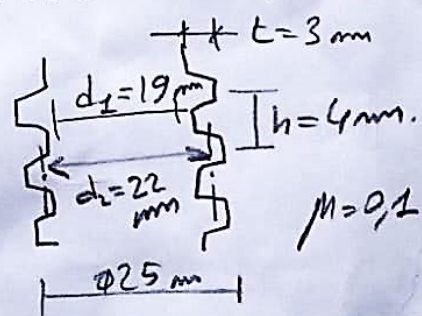 t = 3 mm
d₁ = 19 mm
h = 4 mm.
d₂ = 22 mm
μ = 0,1
φ25 m